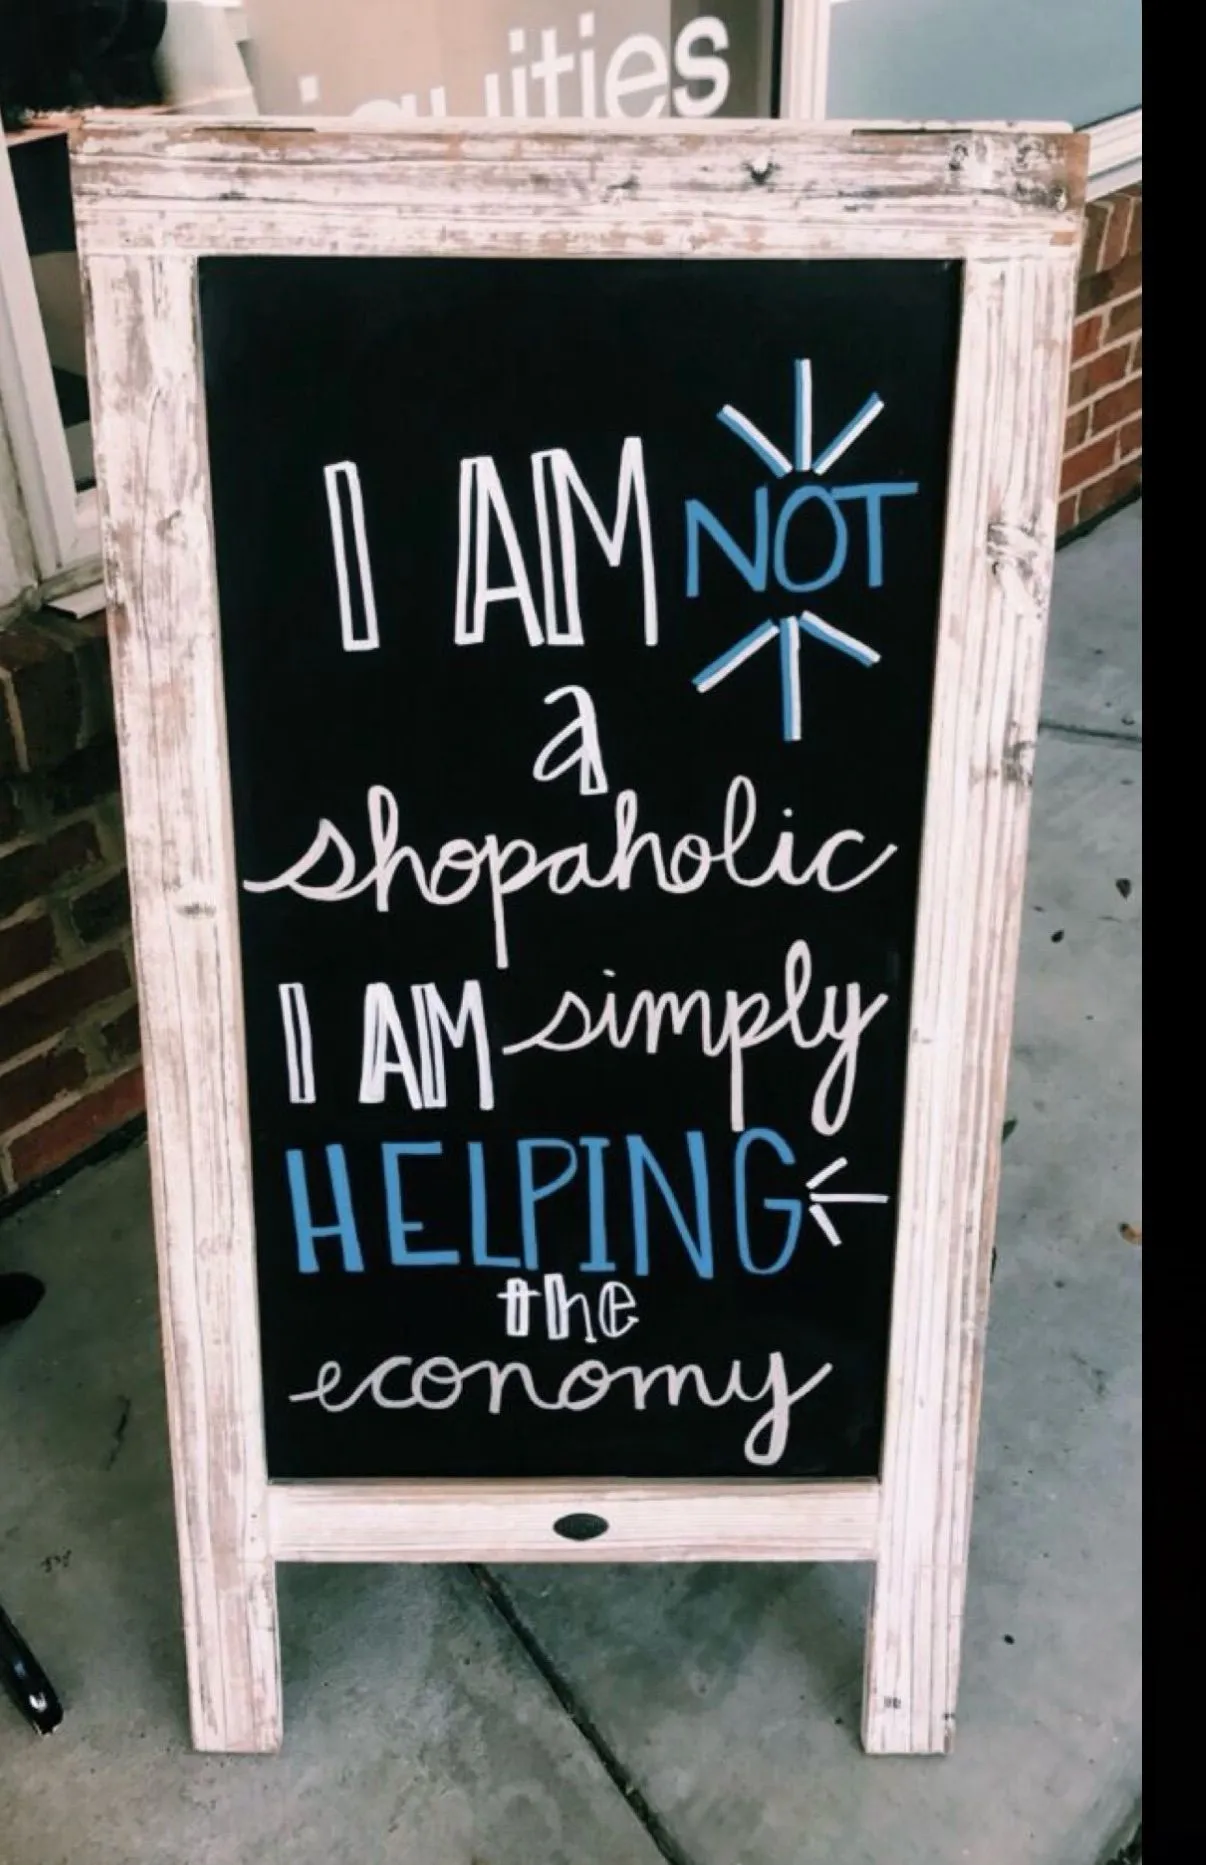 I AM NOT
a
shopaholic
I AM simply
HELPING
the
economy